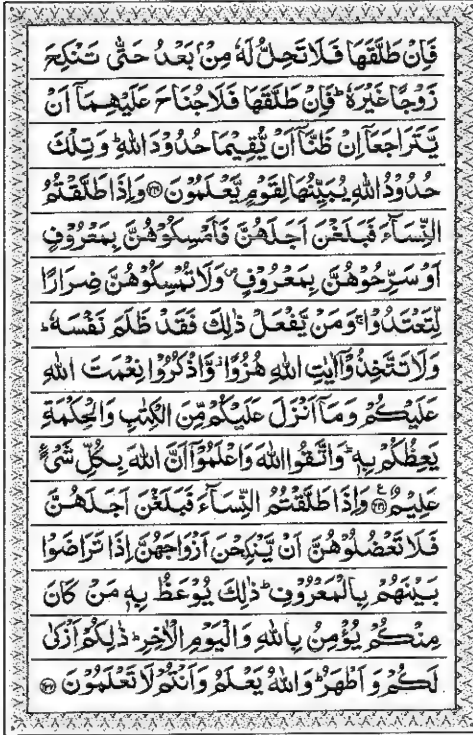 فَاِنْ طَلَّقَهَا فَلَا تَحِلُّ لَهٗ مِنْۢ بَعْدُ حَتّٰى تَنْكِحَ
زَوْجًا غَيْرَهٗ ؕ فَاِنْ طَلَّقَهَا فَلَا جُنَاحَ عَلَيْهِمَاۤ اَنْ
يَّتَرَاجَعَاۤ اِنْ ظَنَّاۤ اَنْ يُّقِيْمَا حُدُوْدَ اللّٰهِ ؕ وَ تِلْكَ
حُدُوْدُ اللّٰهِ يُبَيِّنُهَا لِقَوْمٍ يَّعْلَمُوْنَ ۝ وَاِذَا طَلَّقْتُمُ
النِّسَآءَ فَبَلَغْنَ اَجَلَهُنَّ فَاَمْسِكُوْهُنَّ بِمَعْرُوْفٍ
اَوْ سَرِّحُوْهُنَّ بِمَعْرُوْفٍ ۪ وَلَا تُمْسِكُوْهُنَّ ضِرَارًا
لِّتَعْتَدُوْا ۚ وَمَنْ يَّفْعَلْ ذٰلِكَ فَقَدْ ظَلَمَ نَفْسَهٗ ؕ
وَلَا تَتَّخِذُوْۤا اٰيٰتِ اللّٰهِ هُزُوًا ۫ وَّاذْكُرُوْا نِعْمَتَ اللّٰهِ
عَلَيْكُمْ وَمَاۤ اَنْزَلَ عَلَيْكُمْ مِّنَ الْكِتٰبِ وَالْحِكْمَةِ
يَعِظُكُمْ بِهٖ ؕ وَاتَّقُوا اللّٰهَ وَاعْلَمُوْۤا اَنَّ اللّٰهَ بِكُلِّ شَيْءٍ
عَلِيْمٌ ۝ وَاِذَا طَلَّقْتُمُ النِّسَآءَ فَبَلَغْنَ اَجَلَهُنَّ
فَلَا تَعْضُلُوْهُنَّ اَنْ يَّنْكِحْنَ اَزْوَاجَهُنَّ اِذَا تَرَاضَوْا
بَيْنَهُمْ بِالْمَعْرُوْفِ ؕ ذٰلِكَ يُوْعَظُ بِهٖ مَنْ كَانَ
مِنْكُمْ يُؤْمِنُ بِاللّٰهِ وَالْيَوْمِ الْاٰخِرِ ؕ ذٰلِكُمْ اَزْكٰى
لَكُمْ وَ اَطْهَرُ ؕ وَاللّٰهُ يَعْلَمُ وَاَنْتُمْ لَا تَعْلَمُوْنَ ۝